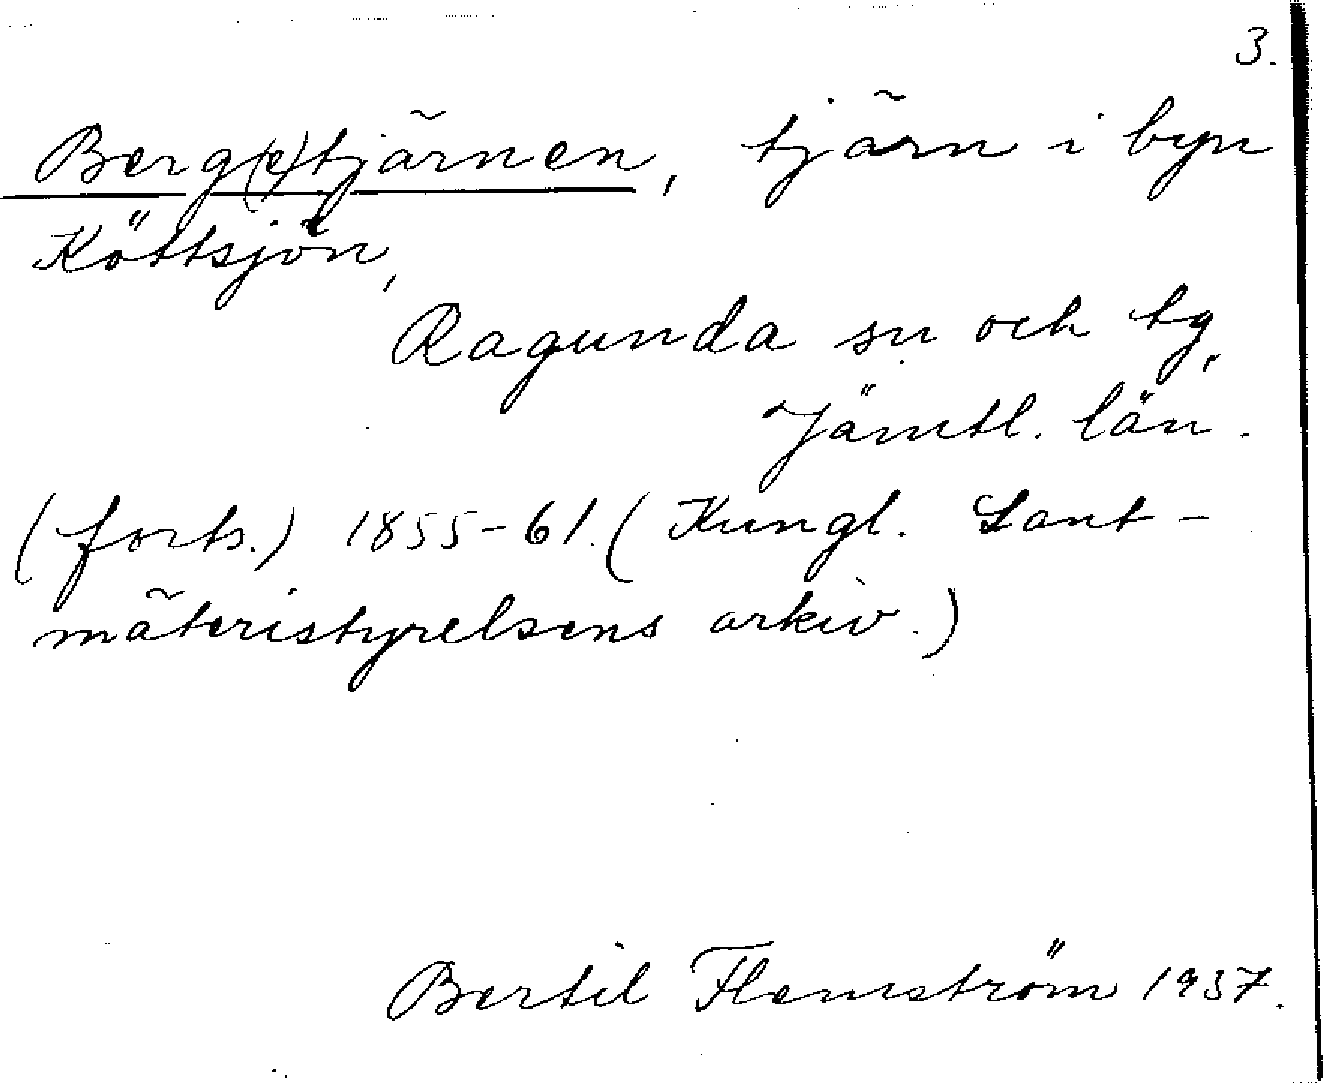 3.
Berg(e)tjärnen, tjärn i byn
Köttsjön,
Ragunda sn och tg,
Jämtl. län.
(forts.) 1855-61. (Kungl. Lant-
mäteristyrelsens arkiv.)
Bertil Flemström 1937.